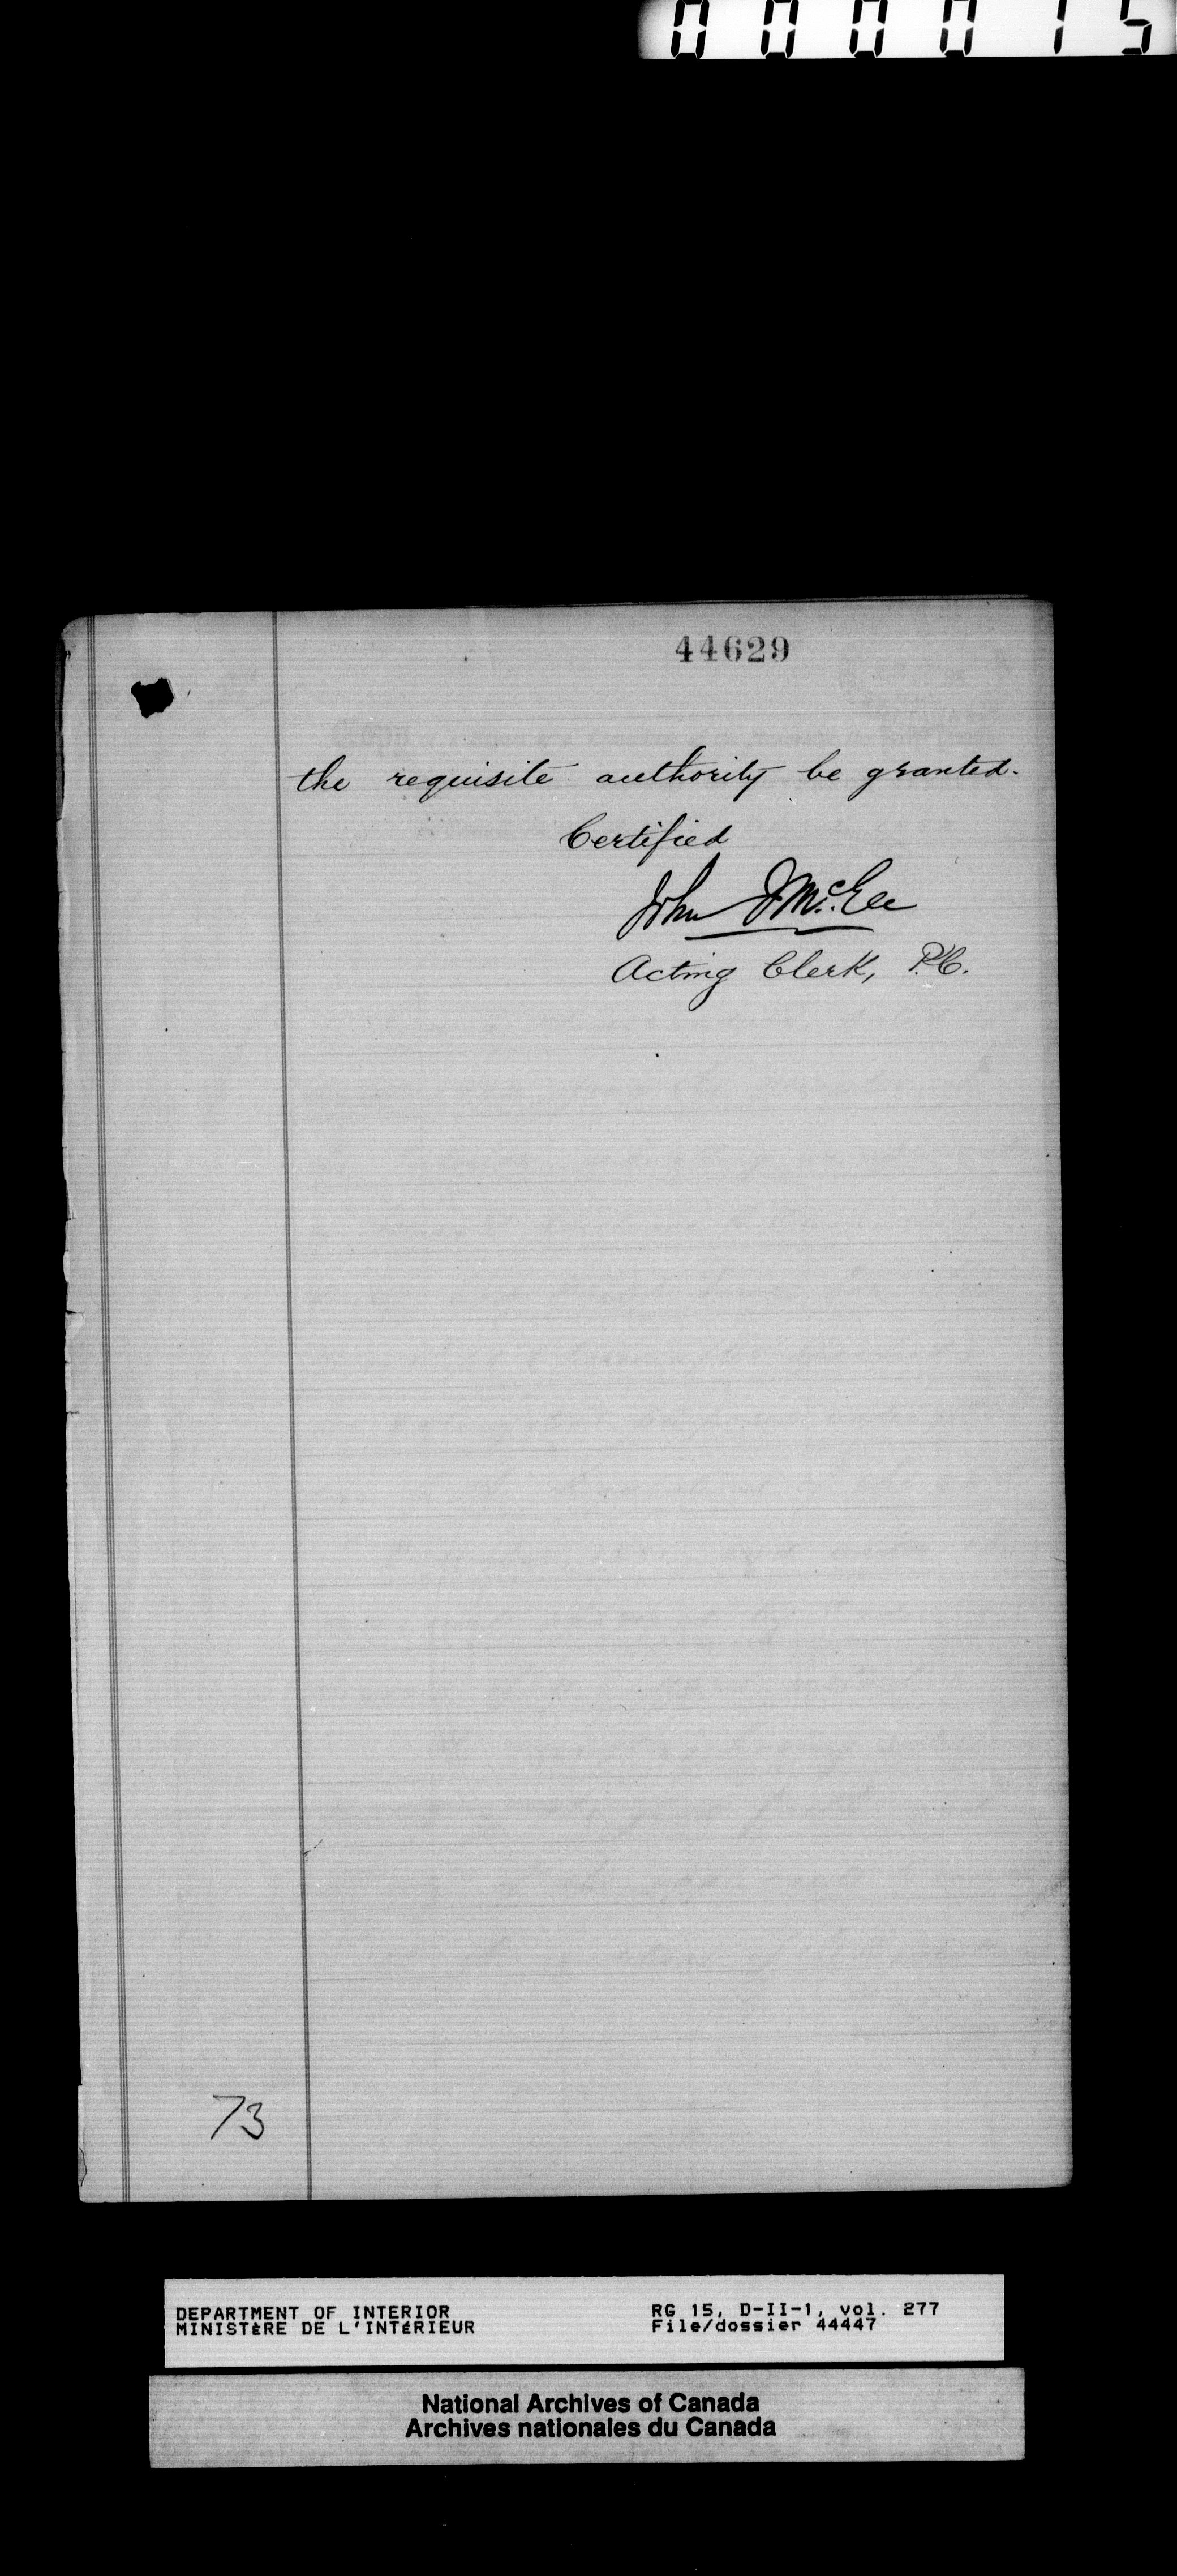 000015
44629
the requisite authority be granted.
Certified
John J McGee
Acting Clerk, P.C.
73
DEPARTMENT OF INTERIOR
MINISTÈRE DE L'INTÉRIEUR
RG 15, D-II-1, vol. 277
File/dossier 44447
National Archives of Canada
Archives nationales du Canada